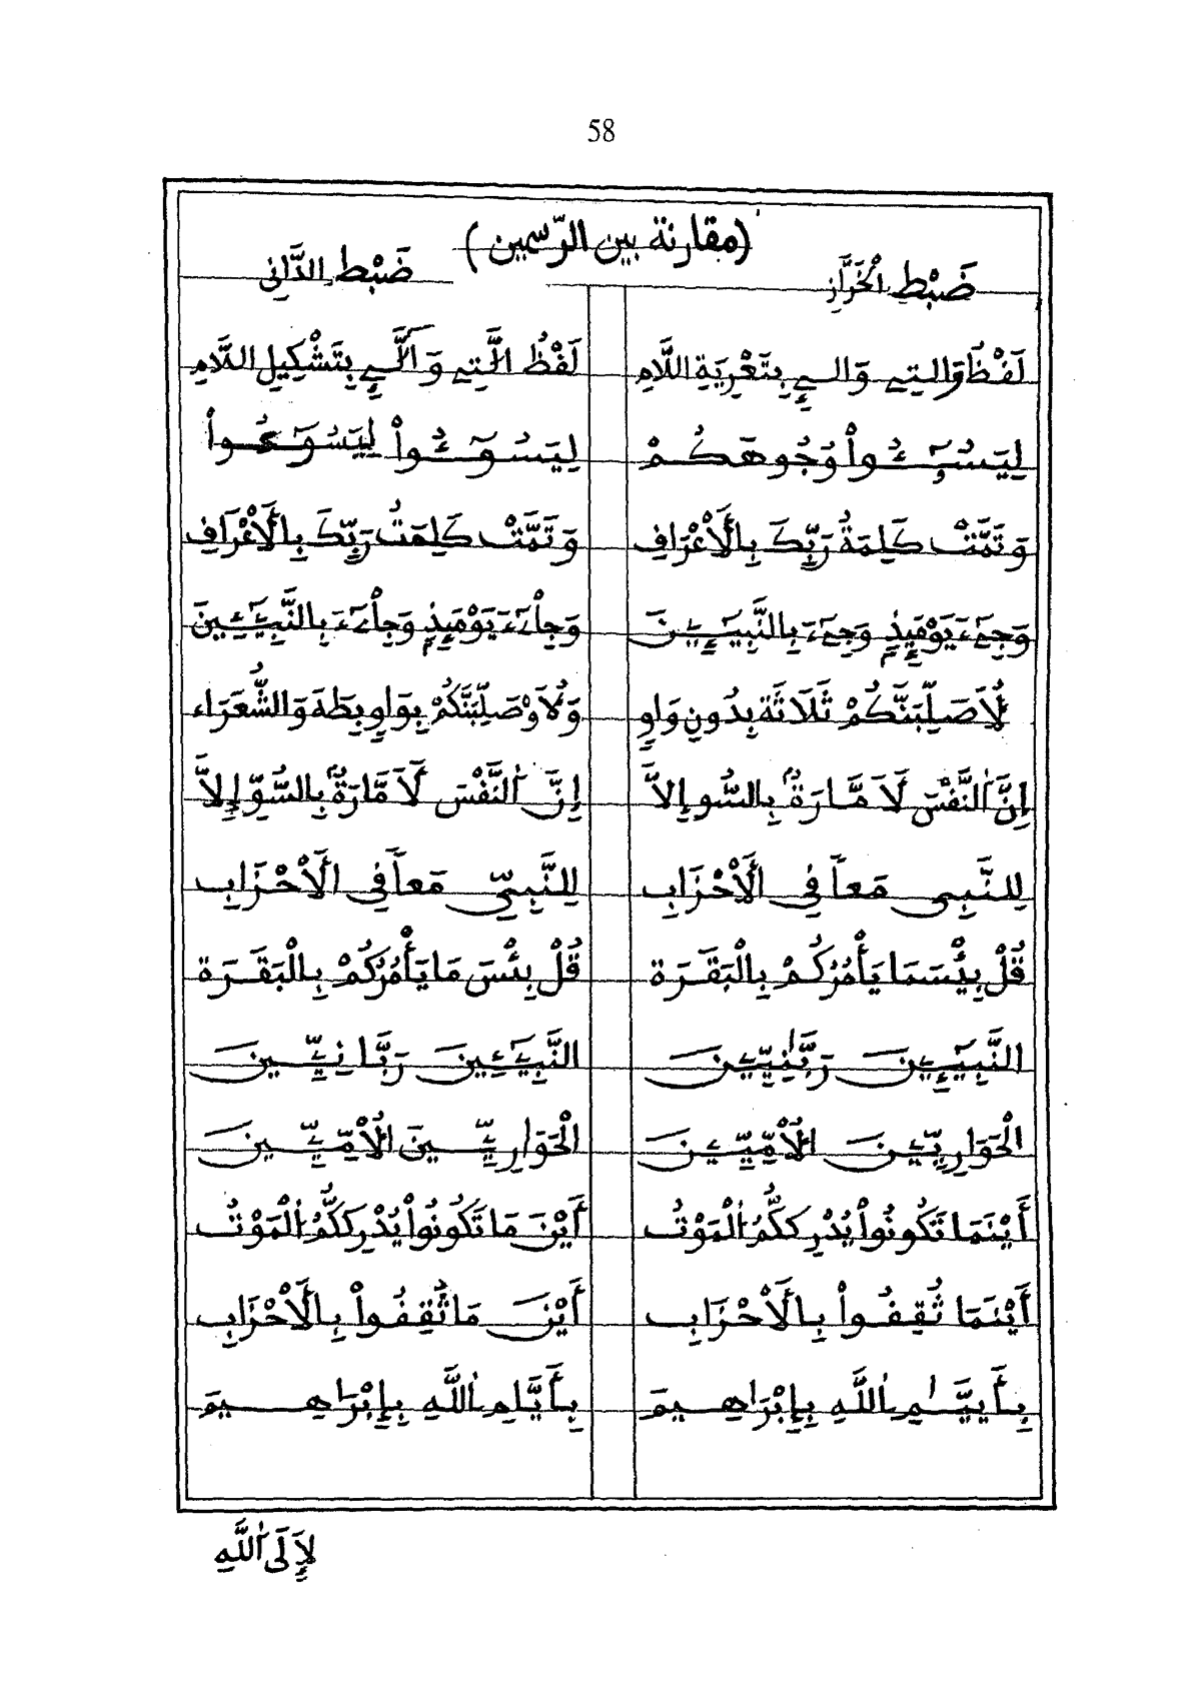 58
(مقارنة بين الرّسمين)
ضَبْط الْخَرَّاز ضَبْط الدَّانِي
لَفْظُ وَالتِے وَالے بِتَعْرِيَةِ اللَّامِ لَفْظُ الَّتِے وَالَّے بِتَشْكِيلِ اللَّامِ
لِيَسُۥٓـُٔواْ وُجُوهَكُمْ لِيَسُوٓـُٔواْ لِيَسُوٓـُٔواْ
وَتَمَّتْ كَلِمَةُ رَبِّكَ بِالْأَعْرَافِ وَتَمَّتْ كَلِمَتُ رَبِّكَ بِالْأَعْرَافِ
وَجِےٓءَ يَوْمَئِذٍ وَجِےٓءَ بِالنَّبِيٓـِٕينَ وَجِاْےٓءَ يَوْمَئِذٍ وَجِاْےٓءَ بِالنَّبِيٓـِٕينَ
لُأَصَلِّبَنَّكُمْ ثَلَاثَة بِدُونِ وَاوٍ وَلَأُوْصَلِّبَنَّكُمْ بِوَاوٍ بِطَهَ وَالشُّعَرَاء
إِنَّ اَلنَّفْسَ لَأَمَّارَةُۢ بِالسُّوِ إِلاَّ إِنَّ اَلنَّفْسَ لَأَمَّارَةُۢ بِالسُّوِّ إِلاَّ
لِلنَّبِےِ مَعاً فِي الْأَحْزَابِ لِلنَّبِيِّ مَعاً فِي الْأَحْزَابِ
قُلْ بِيْسَمَا يَأْمُرُكُمْ بِالْبَقَرَة قُلْ بِئْسَ مَا يَأْمُرُكُمْ بِالْبَقَرَة
النَّبِيٓـِٕينَ رَبَّٰنِيِّـنَ النَّبِيٓـِٕينَ رَبَّانِيِّينَ
الْحَوَارِيِّـنَ الْأُمِّيِّـنَ الْحَوَارِيِّينَ الْأُمِّيِّينَ
أَيْنَمَا تَكُونُواْ يُدْرِككُّمُ اُلْمَوْتُ أَيْنَ مَا تَكُونُواْ يُدْرِككُّمُ اُلْمَوْتُ
أَيْنَمَا ثُقِفُواْ بِالْأَحْزَابِ أَيْنَ مَا ثُقِفُواْ بِالْأَحْزَابِ
بِأَيَيَّٰمِ اِللَّهِ بِإِبْرَاهِيمَ بِأَيَّامِ اِللَّهِ بِإِبْرَاهِيمَ
لَإِلَى اَللَّهِ